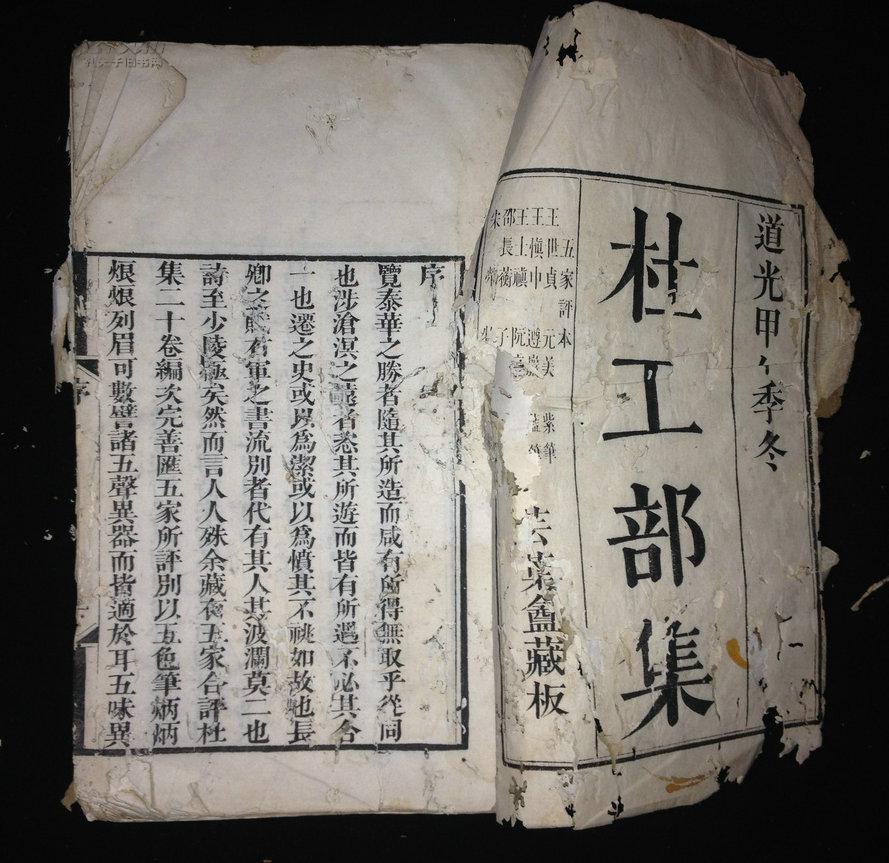 道光甲午季冬
杜工部集
五家評本
王世貞 元美 紫筆
王慎中 遵巖
王士禛 阮亭
邵長蘅 子
宋犖
芸葉盦藏板
序
覽泰華之勝者隨其所造而咸有所得無取乎從同
也涉滄溟之
者忞其所遊而皆有所遇不必其合
一也遷之史或以爲潔或以爲憤其不祧如故也長
卿之賦右軍之書流別者代有其人其波瀾莫二也
詩至少陵極矣然而言人人殊余藏有五家合評杜
集二十卷編次完善匯五家所評別以五色筆炳炳
烺烺列眉可數譬諸五聲異器而皆適於耳五味異
序